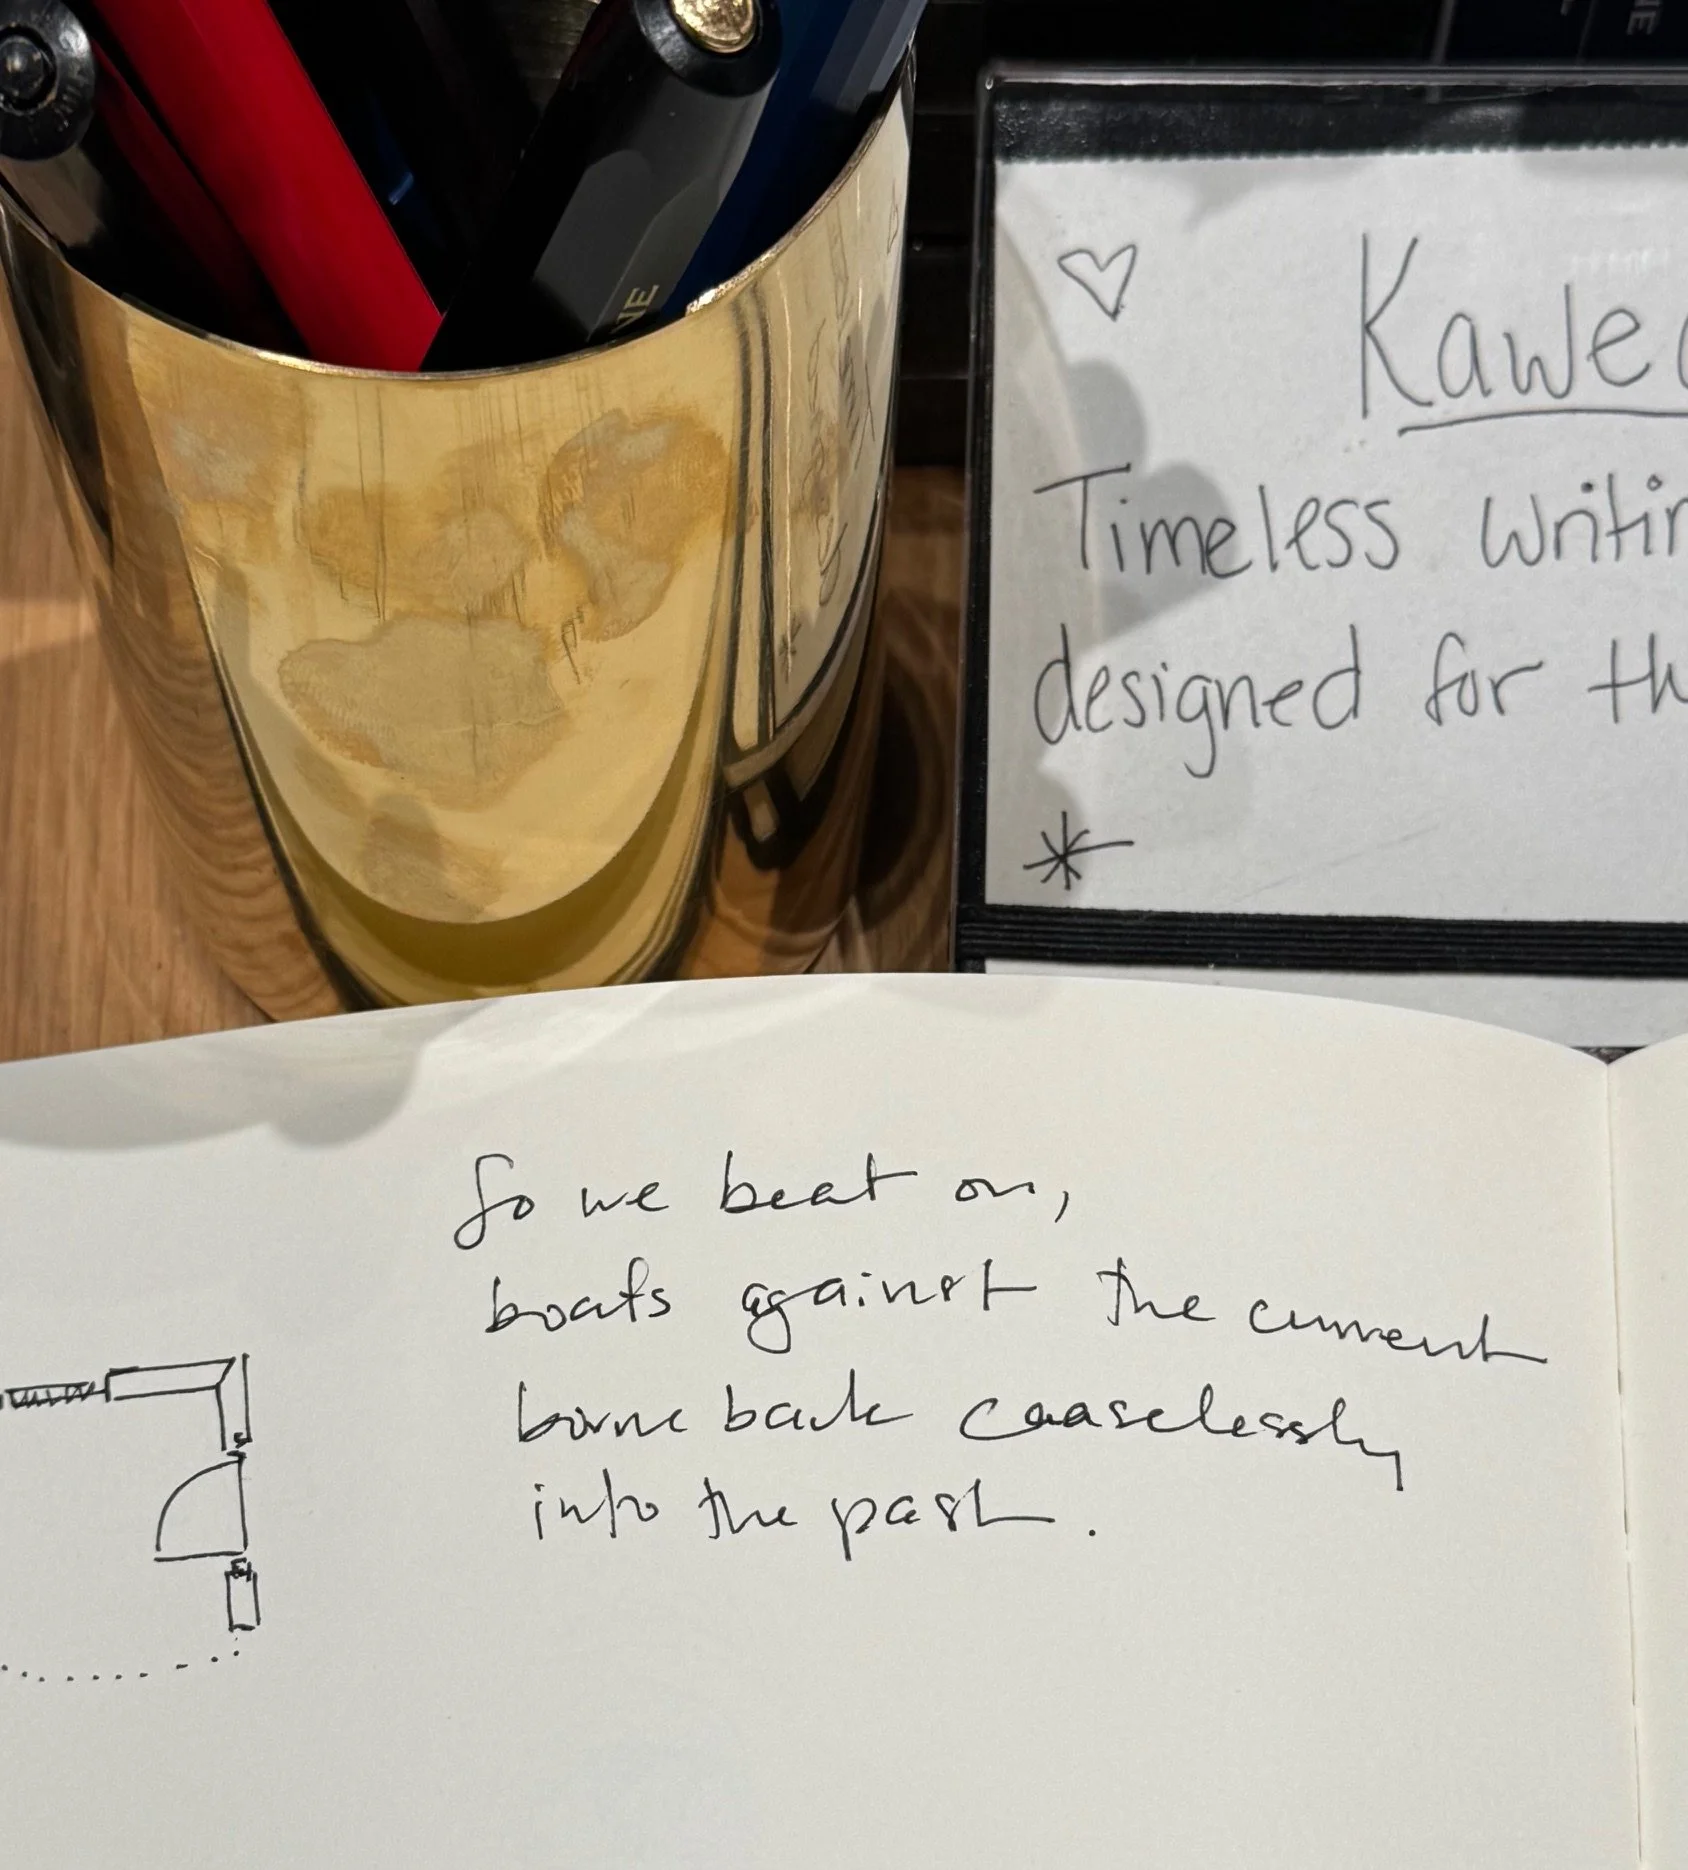 NE
NE
Kawec
Timeless writin
designed for th
So we beat on,
boats against the current
borne back ceaselessly
into the past.